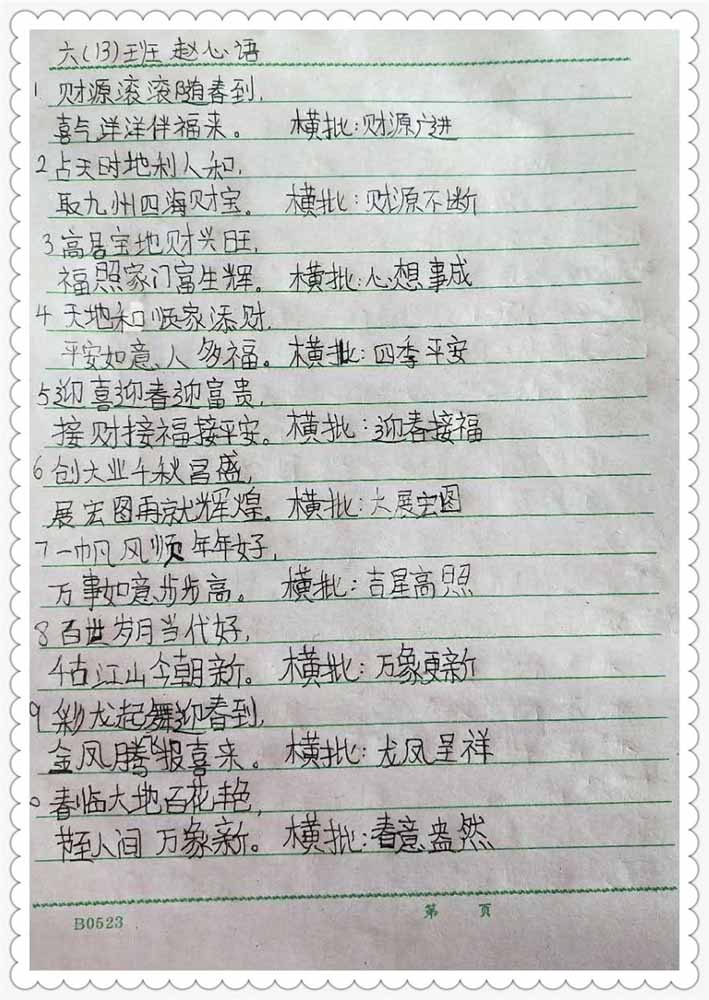 六(13)班 赵心语
1 财源滚滚随春到,
喜气洋洋伴福来。 横批:财源广进
2 占天时地利人和,
取九州四海财宝。 横批:财源不断
3 高居宝地财兴旺,
福照家门富生辉。 横批:心想事成
4 天地和顺家添财,
平安如意人多福。 横批:四季平安
5 迎喜迎春迎富贵,
接财接福接平安。 横批:迎春接福
6 创大业千秋昌盛,
展宏图再就辉煌。 横批:大展宏图
7 一帆风顺年年好,
万事如意步步高。 横批:吉星高照
8 百世岁月当代好,
千古江山今朝新。 横批:万象更新
9 彩龙起舞迎春到,
金凤腾飞报喜来。 横批:龙凤呈祥
0 春临大地百花艳,
节至人间万象新。 横批:春意盎然
B0523 第 页